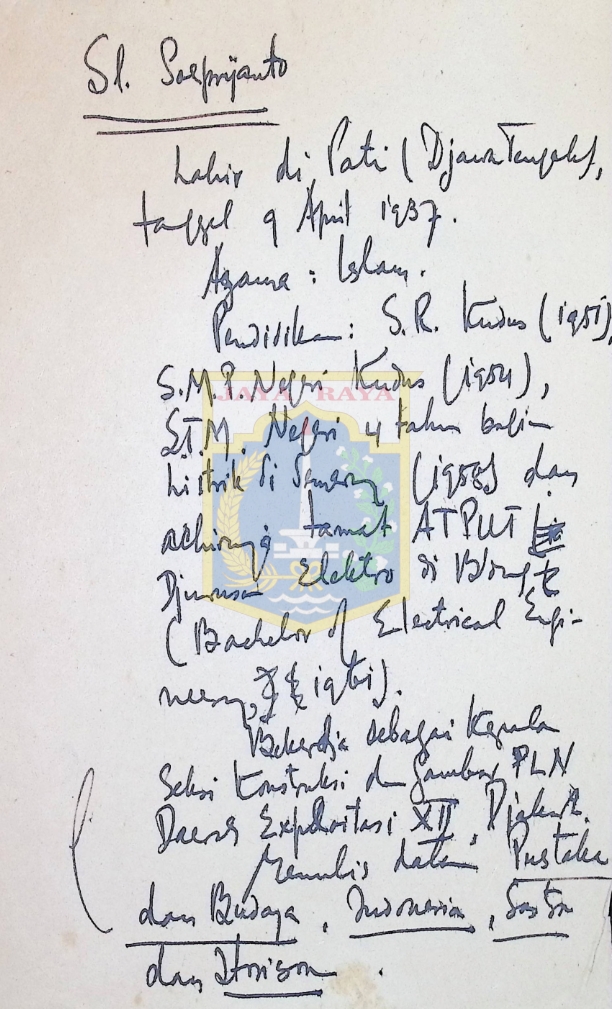 Sl. Soeprijanto
Lahir di Pati (Djawa Tengah),
tanggal 9 April 1937.
Agama : Islam.
Pendidikan : S.R. Kudus (1951),
S.M.P. Negeri Kudus (1954),
JAYA RAYA
S.T.M. Negeri 4 tahun bagian
Listrik di Semarang (1958) dan
achirnja tamat ATPUT
Djurusan Elektro di Bdung
(Bachelor of Electrical Engi-
neering, 1961).
Bekerdja sebagai Kepala
Seksi Konstruksi dan Gambar PLN
Daerah Exploitasi XII, Djakarta.
Menulis dalam Pustaka
dan Budaya, Indonesia, Sastra
dan Horison.